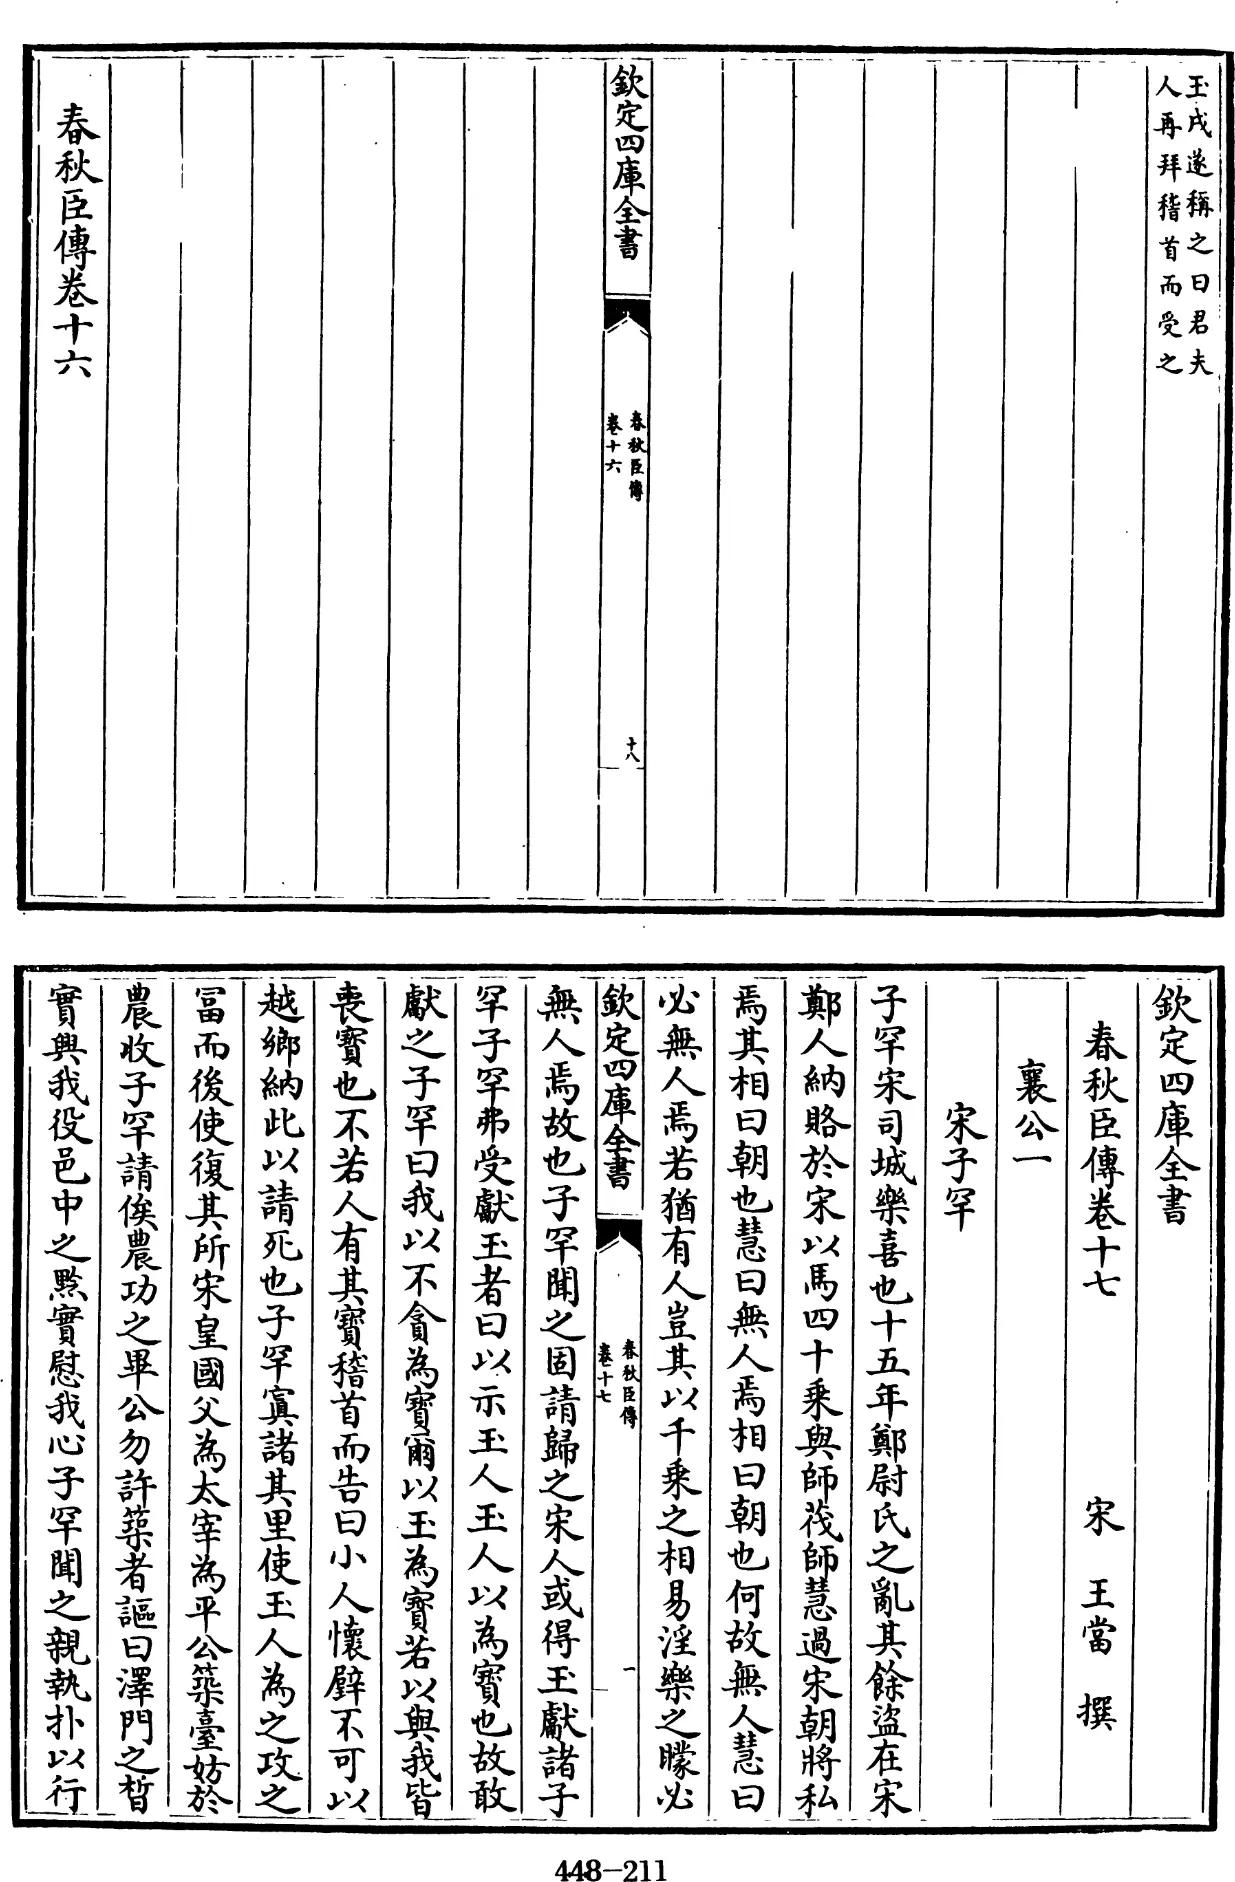 玉戌遂稱之曰君夫
人再拜稽首而受之
欽定四庫全書
春秋臣傳
卷十六
十八
春秋臣傳卷十六
欽定四庫全書
春秋臣傳卷十七
宋 王當 撰
襄公一
宋子罕
子罕宋司城樂喜也十五年鄭尉氏之亂其餘盜在宋
鄭人納賂於宋以馬四十乘與師茷師慧過宋朝將私
焉其相曰朝也慧曰無人焉相曰朝也何故無人慧曰
必無人焉若猶有人豈其以千乘之相易淫樂之矇必
欽定四庫全書
春秋臣傳
卷十七
一
無人焉故也子罕聞之固請歸之宋人或得玉獻諸子
罕子罕弗受獻玉者曰以示玉人玉人以為寶也故敢
獻之子罕曰我以不貪為寶爾以玉為寶若以與我皆
喪寶也不若人有其寶稽首而告曰小人懷璧不可以
越鄉納此以請死也子罕寘諸其里使玉人為之攻之
富而後使復其所宋皇國父為太宰為平公築臺妨於
農收子罕請俟農功之畢公勿許築者謳曰澤門之晳
實興我役邑中之黔實慰我心子罕聞之親執扑以行
448-211